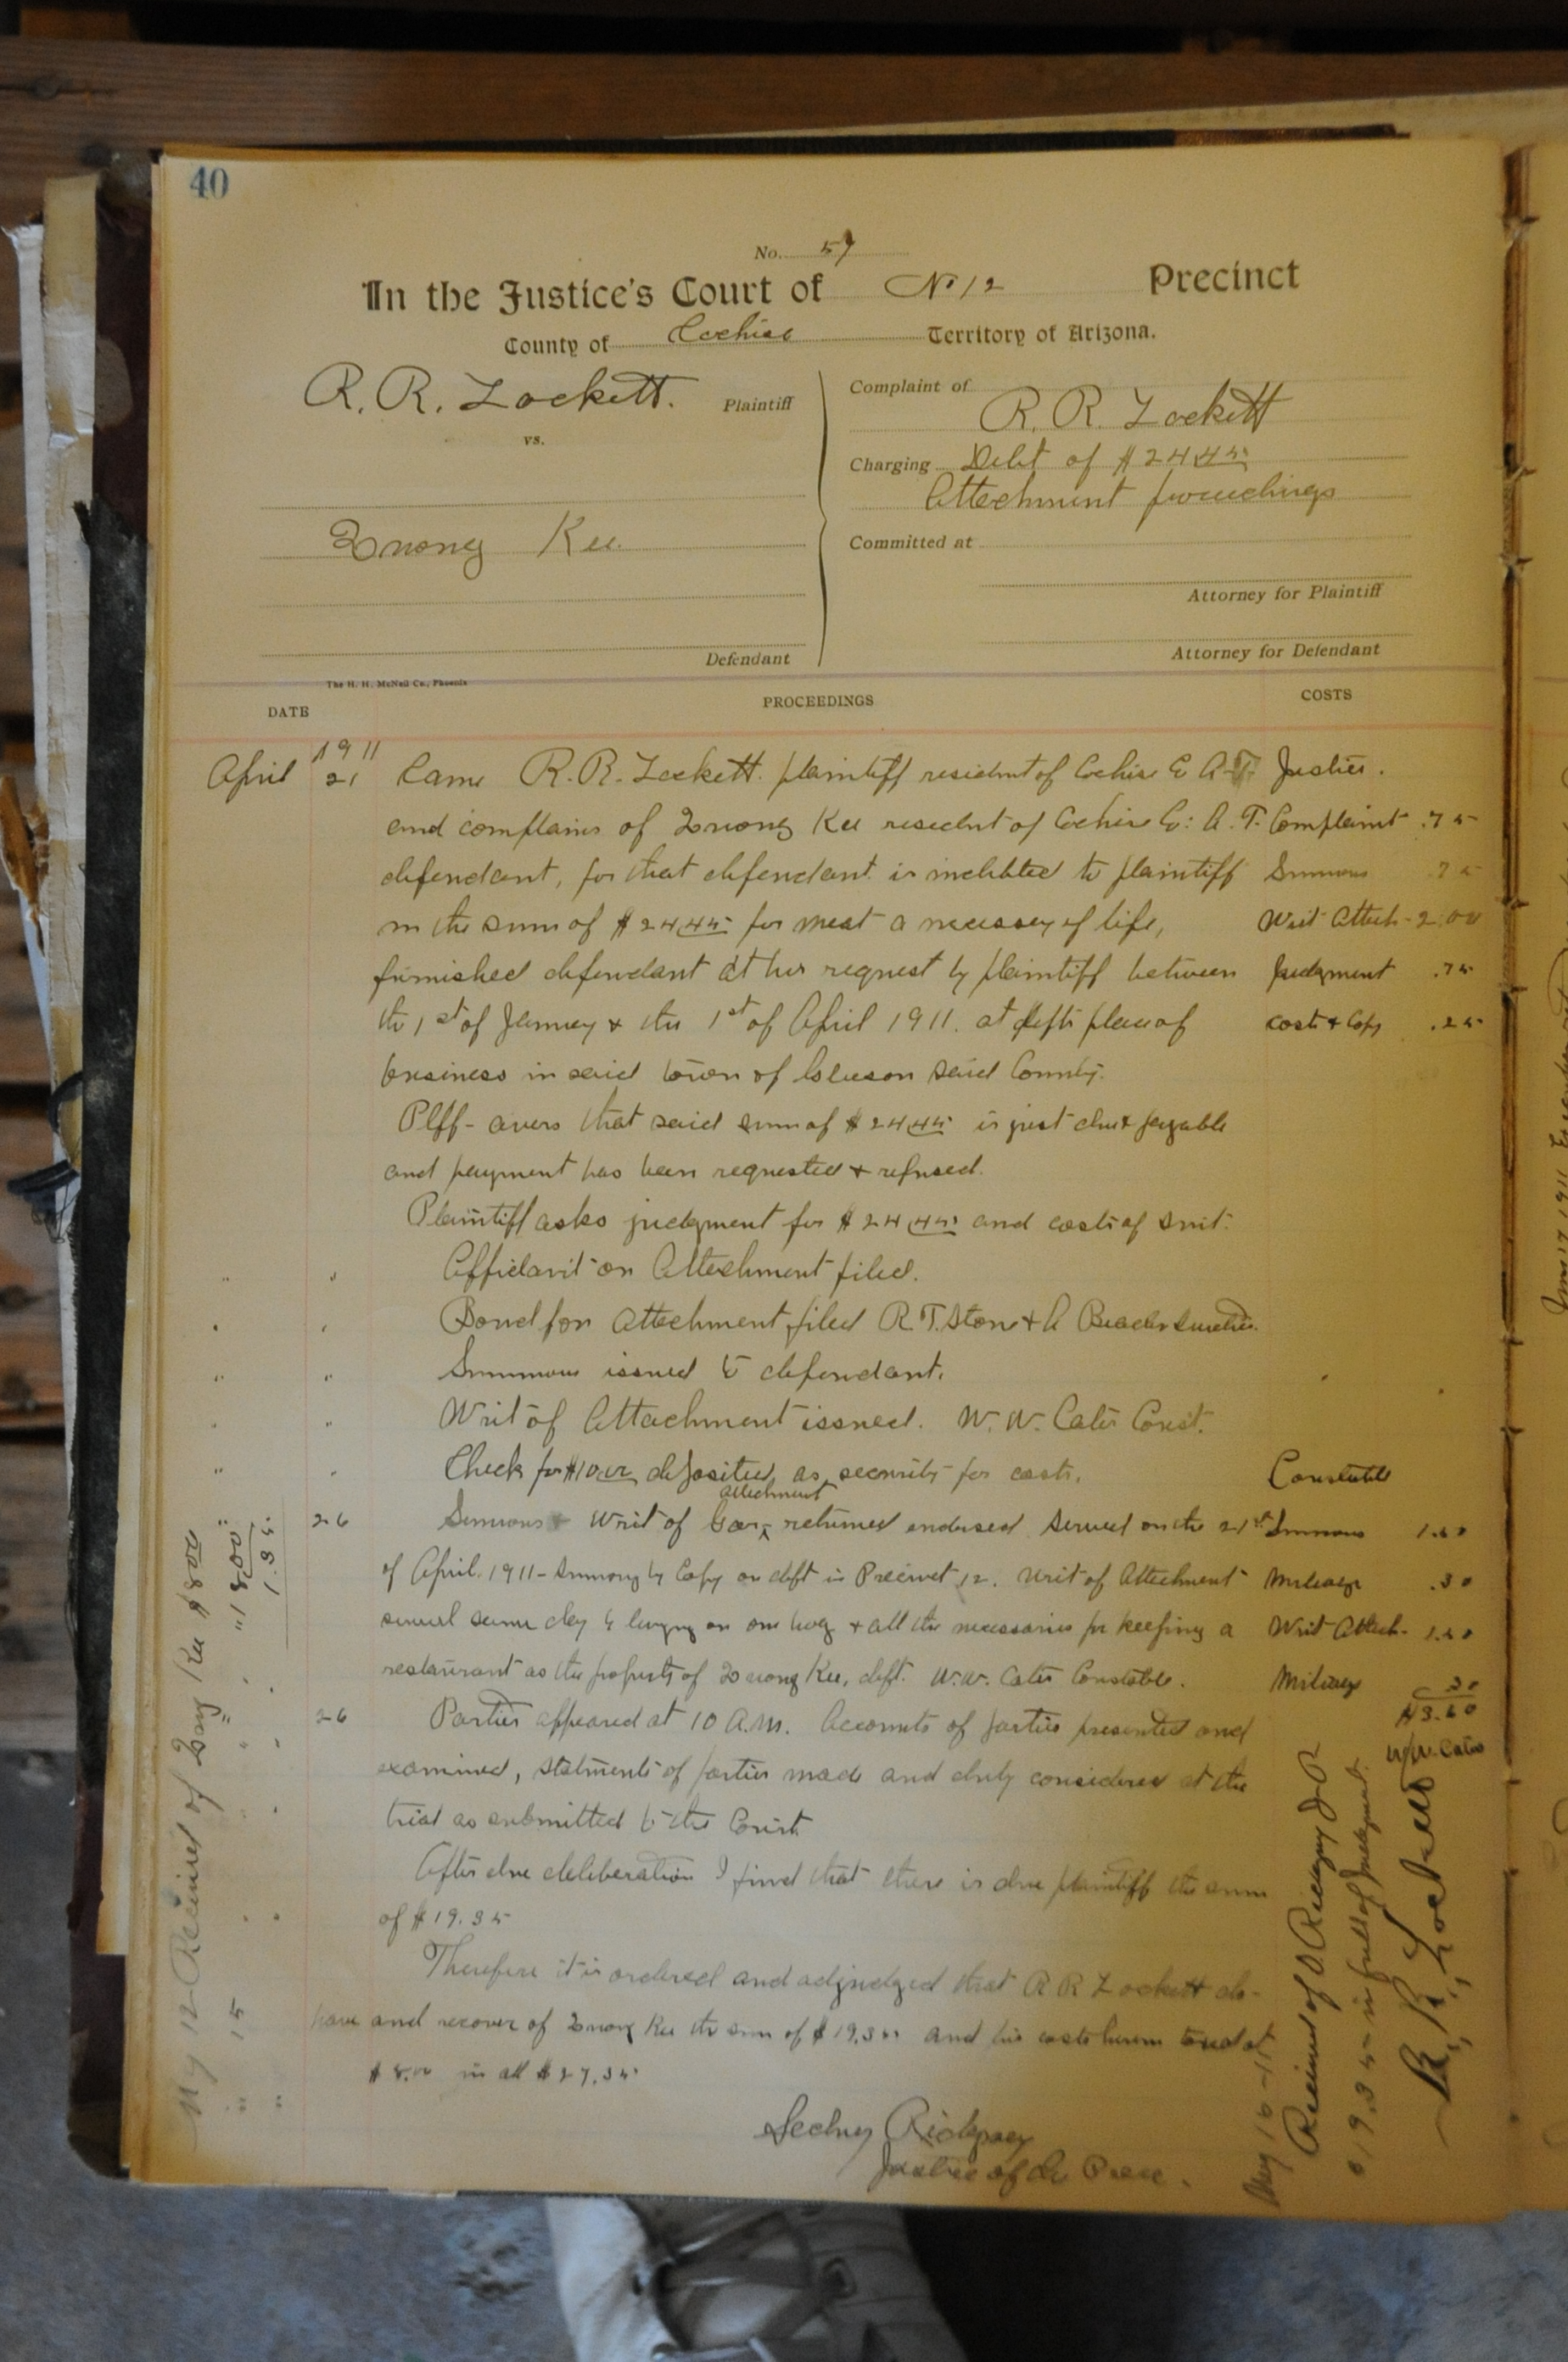 40
No. 57
In the Justice's Court of No 12 Precinct
County of Cochise Territory of Arizona.
R. R. Lockett. Plaintiff
vs.
Quong Kee.
Defendant
Complaint of
R. R. Lockett
Charging Debt of $24 45
Attachment proceedings
Committed at
Attorney for Plaintiff
Attorney for Defendant
The H. H. McNeil Co., Phoenix
DATE PROCEEDINGS COSTS
1911
April 21 Came R. R. Lockett. plaintiff resident of Cochise Co A.T. Justice.
and complains of Quong Kee resident of Cochise Co: A. T. Complaint .75
defendant, for that defendant is indebted to plaintiff Summons .75
in the sum of $24 45 for meat a necessey of life, Writ Attach - 2.00
furnished defendant at his request by plaintiff between Judgment .75
the 1st of January & the 1st of April 1911. at defts place of Costs & Copy .25
business in said town of Gleeson said County.
Plff - avers that said sum of $24 45 is just due & payable
and payment has been requested & refused.
Plaintiff asks judgment for $24 45 and costs of suit.
" " Affidavit on Attachment filed.
" " Bond for attachment filed R. T. Stone &
" " Summons issued to defendant.
" " Writ of Attachment issued. W. W. Cates Const.
" " Check for $10 00 deposited as security for costs. Constable
attachment
26 Summons & Writ of Gar ^ returned endorsed served on the 21st Summons 1.50
of April. 1911 - Summons by Copy on deft in Precinct 12. Writ of Attachment Mileage .30
served same day by levying on one hog & all the necessaries for keeping a Writ Attach - 1.50
restaurant as the property of Quong Kee, deft. W. W. Cates Constable. Mileage .30
$3.60
W. W. Cates
26 Parties appeared at 10 A.M. Accounts of parties presented and
examined, statments of parties made and duly considered at the
trial as submitted to the Court
After due deliberation I find that there is due plaintiff the sum
of $19.35
Therefore it is ordered and adjudged that R R Lockett do
have and recover of Quong Kee the sum of $19.35 and his costs herein taxed at
$8.00 in all $27.35
Sedney Ridgway
Justice of the Peace.
My 12 Received of Kee $8 00
" 15 " " " " " 18 00
1.35
May 16 - 11
Received of S Ridgway J. P.
$19.35 in full of Judgment.
R. R. Lockett